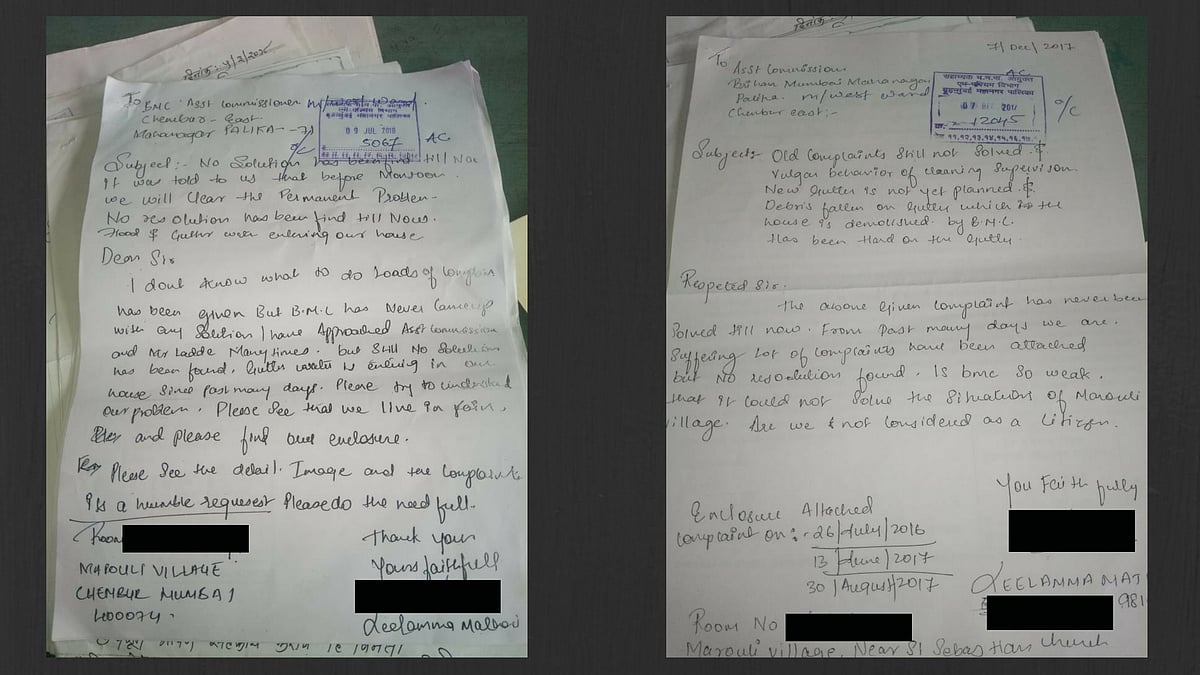 दिनांक:
To
BMC Asst Commissioner M/West Ward.
Chembur - East.
Mahanagar PALIKA - 71
एम-पश्चिम विभाग
बृहन्मुंबई महानगर पालिका
09 JUL 2018
5067
o/c
AC
Subject:- No Solution has been find till Now
It was told to us that before Monsoon
we will Clear the Permanent Problem-
No resolution has been find till Nows.
Flood & Gutter water entering our house
Dear Sir
I dont know what to do Loads of Complain
has been given But B.M.C has Never Came up
with any Solution I have Approached Asst Commission
and Mr Ladde Many times. but Still No Solution
has been found. Gutter water is entering in our
house Since Past many days. Please try to understand
our problem. Please See that we live in
and please find our enclosure.
Please See the detail. Image and the Complaint
Its a humble requesest Please do the need full.
Room
MAROULI VILLAGE
CHEMBUR MUMBAI
400074.
Thank you
Yours faithfull
Leelamma
7/Dec/2017
To
Asst Commission
Brihan Mumbai Mahanagar
Palike. M/West Ward
Chembur east:-
AC
सहाय्यक म.न.पा. आयुक्त
एम-पश्चिम विभाग
बृहन्मुंबई महानगर पालिका
07 DEC 2017
12045
११,१२,१३,१४,१५,१६,१७
o/c
Subject:- Old Complaints Still not Solved. &
Vulgar behavior of cleaning Supervison.
New Gutter is not yet planned. &
Debris fallen on Gully which is the
house is demolished by B.M.C.
Has been Hard on the Gully.
Respeted Sir.
The above Given Complaint has never been
Solved till now. From Past many days we are.
Suffering Lot of Complaints have been attached
but No resolution found. Is bmc So weak.
that it could not Solve the Situation of Marouli
Village. Are we not considered as a Citizen.
You Faith fully
Enclosure Attached
Complaint on:- 26/July/2016
13/June/2017
30/August/2017
LEELAMMA MAT
981
Room No
Marouli village, Near St Sebastian Church